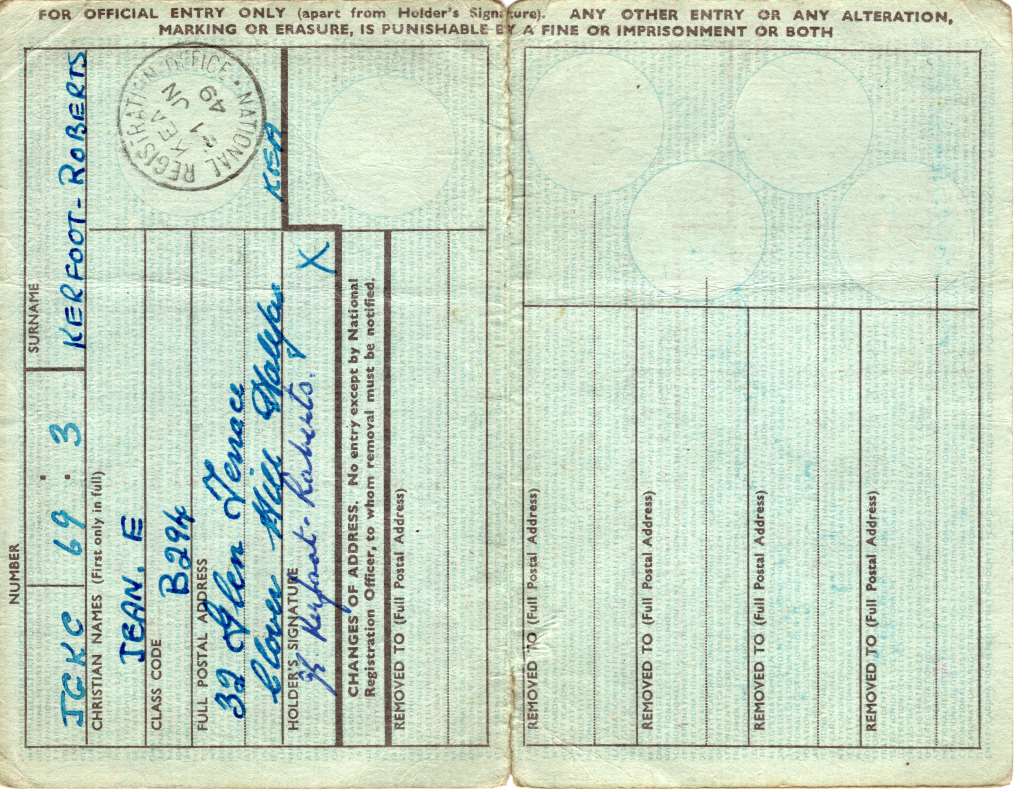 FOR OFFICIAL ENTRY ONLY (apart from Holder's Signature). ANY OTHER ENTRY OR ANY ALTERATION,
MARKING OR ERASURE, IS PUNISHABLE BY A FINE OR IMPRISONMENT OR BOTH
NUMBER
SURNAME
JCKC 69 : 3
KERFOOT-ROBERTS
CHRISTIAN NAMES (First only in full)
JEAN. E
CLASS CODE
B294
FULL POSTAL ADDRESS
32 Glen Terrace
Clover Hill Halifax
HOLDER'S SIGNATURE
Kerfoot-Roberts.
X
KEA
NATIONAL REGISTRATION OFFICE
KEA
21 JN
49
CHANGES OF ADDRESS. No entry except by National
Registration Officer, to whom removal must be notified.
REMOVED TO (Full Postal Address)
REMOVED TO (Full Postal Address)
REMOVED TO (Full Postal Address)
REMOVED TO (Full Postal Address)
REMOVED TO (Full Postal Address)